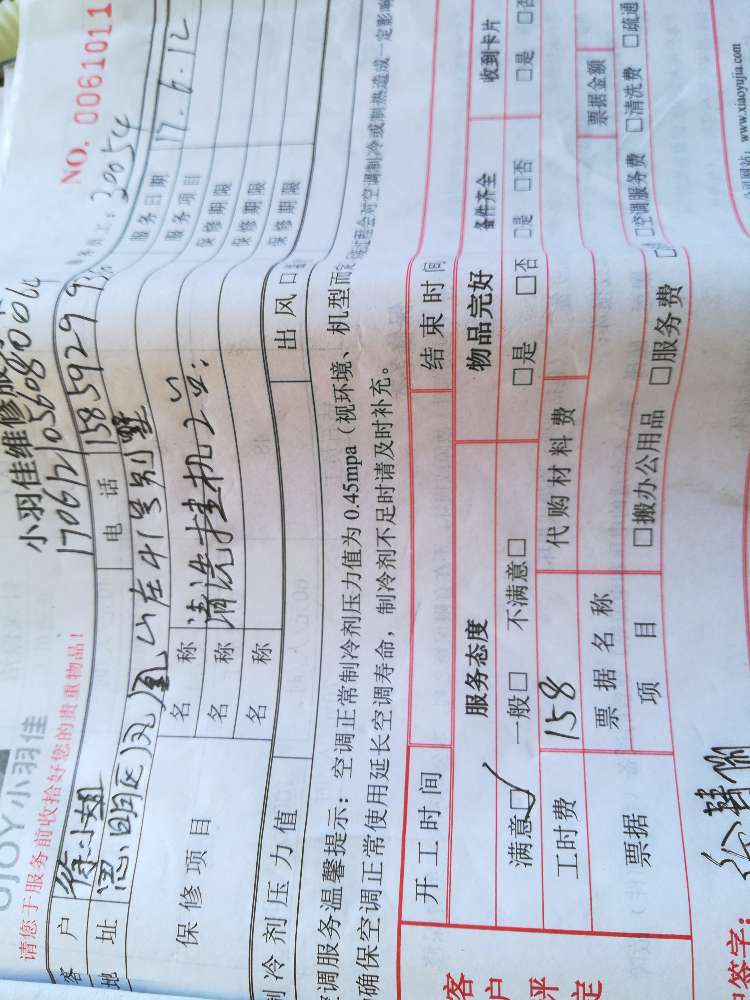 小羽佳维修服务
NO. 0061011
请您于服务前收拾好您的贵重物品！
17061210560800
20054
客户 徐小姐 电话 1585929 服务日期 17.6.12
地址 思明区凤凰山庄41号别墅 服务项目
保修项目 名称 清洗挂机2台 保修期限
名称 保修期限
名称 保修期限
制冷剂压力值 出风口
空调服务温馨提示：空调正常制冷剂压力值为0.45mpa（视环境、机型而定 过程会对空调制冷或制热造成一定影响
确保空调正常使用延长空调寿命，制冷剂不足时请及时补充。
开工时间 结束时间
客户评定 服务态度 物品完好 备件齐全 收到卡片
满意☑ 一般□ 不满意□ □是 □否 □是 □否 □是 □否
工时费 158 代购材料费
票据 票据名称 票据金额
项目 □搬办公用品 □服务费 □空调服务费 □清洗费 □疏通
签字：
网站：www.xiaoyujia.com